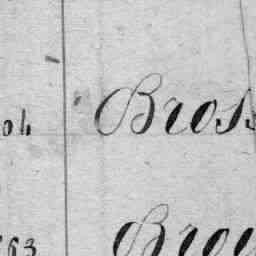 04 Bros
63 Brou